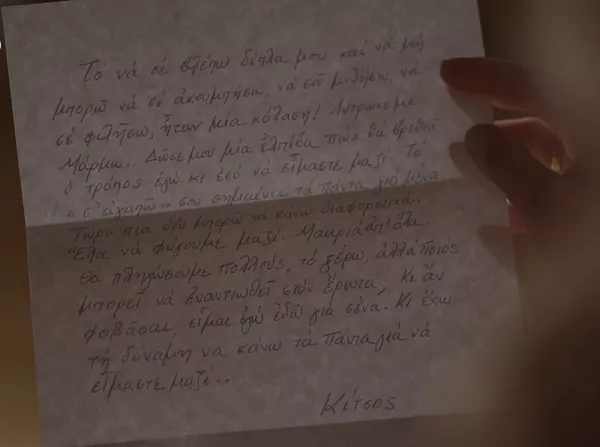 Τό νά σέ βλέπω δίπλα μου καί νά μή
μπορῶ νά σέ ἀκουμπήσω, νά σοῦ μιλήσω, νά
σέ φιλήσω, ἦταν μία κόλαση! Λύτρωσέ με
Μάρμω.. Δῶσε μου μία ἐλπίδα πώς θά βρεθεῖ
ὁ τρόπος ἐγώ κι ἐσύ νά εἴμαστε μαζί. Τό
"σ'ἀγαπῶ" σου σημαίνει τά πάντα γιά μένα.
Τώρα πιά δέν μπορῶ νά κάνω διαφορετικά.
Ἔλα νά φύγουμε μαζί. Μακριά ἀπ' ὅλα.
Θα πληγώσουμε πολλούς, τό ξέρω, ἀλλά ποιός
μπορεῖ νά ἐναντιωθεῖ στόν ἔρωτα. Κι ἄν
φοβᾶσαι, εἶμαι ἐγώ ἐδῶ γιά σένα. Κι ἔχω
τή δύναμη να κάνω τά πάντα γιά νά
εἴμαστε μαζί..
Κίτσος